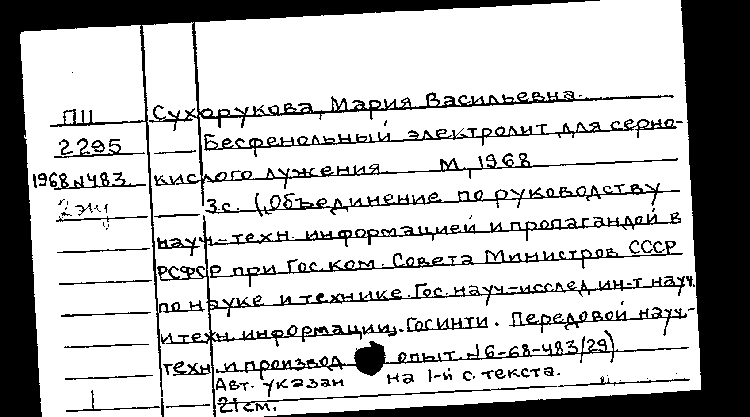 П11
Сухорукова, Мария Васильевна.
2295
Бесфенольный электролит для серно-
1968 №483
кислого лужения М, 1968
2 экз
3с. (Объединение по руководству
науч.-техн. информацией и пропагандой в
РСФСР при Гос. ком. Совета Министров СССР
по науке и технике. Гос. науч-исслед ин-т науч.
и техн. информации. ГОСИНТИ. Передовой науч.-
техн. и производ опыт. №6-68-483/29)
Авт. указан на 1-й с. текста.
21см.
1